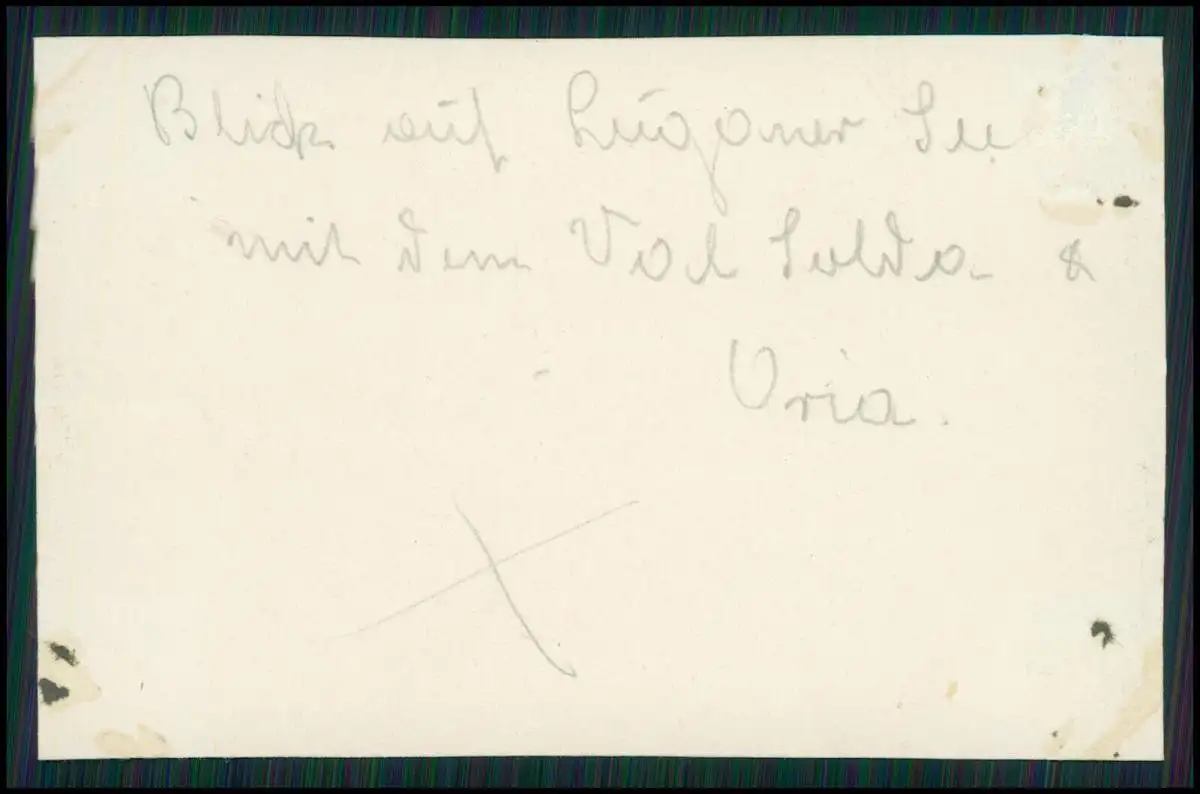 Blick auf Luganer See
mit dem Val Solda &
Oria.